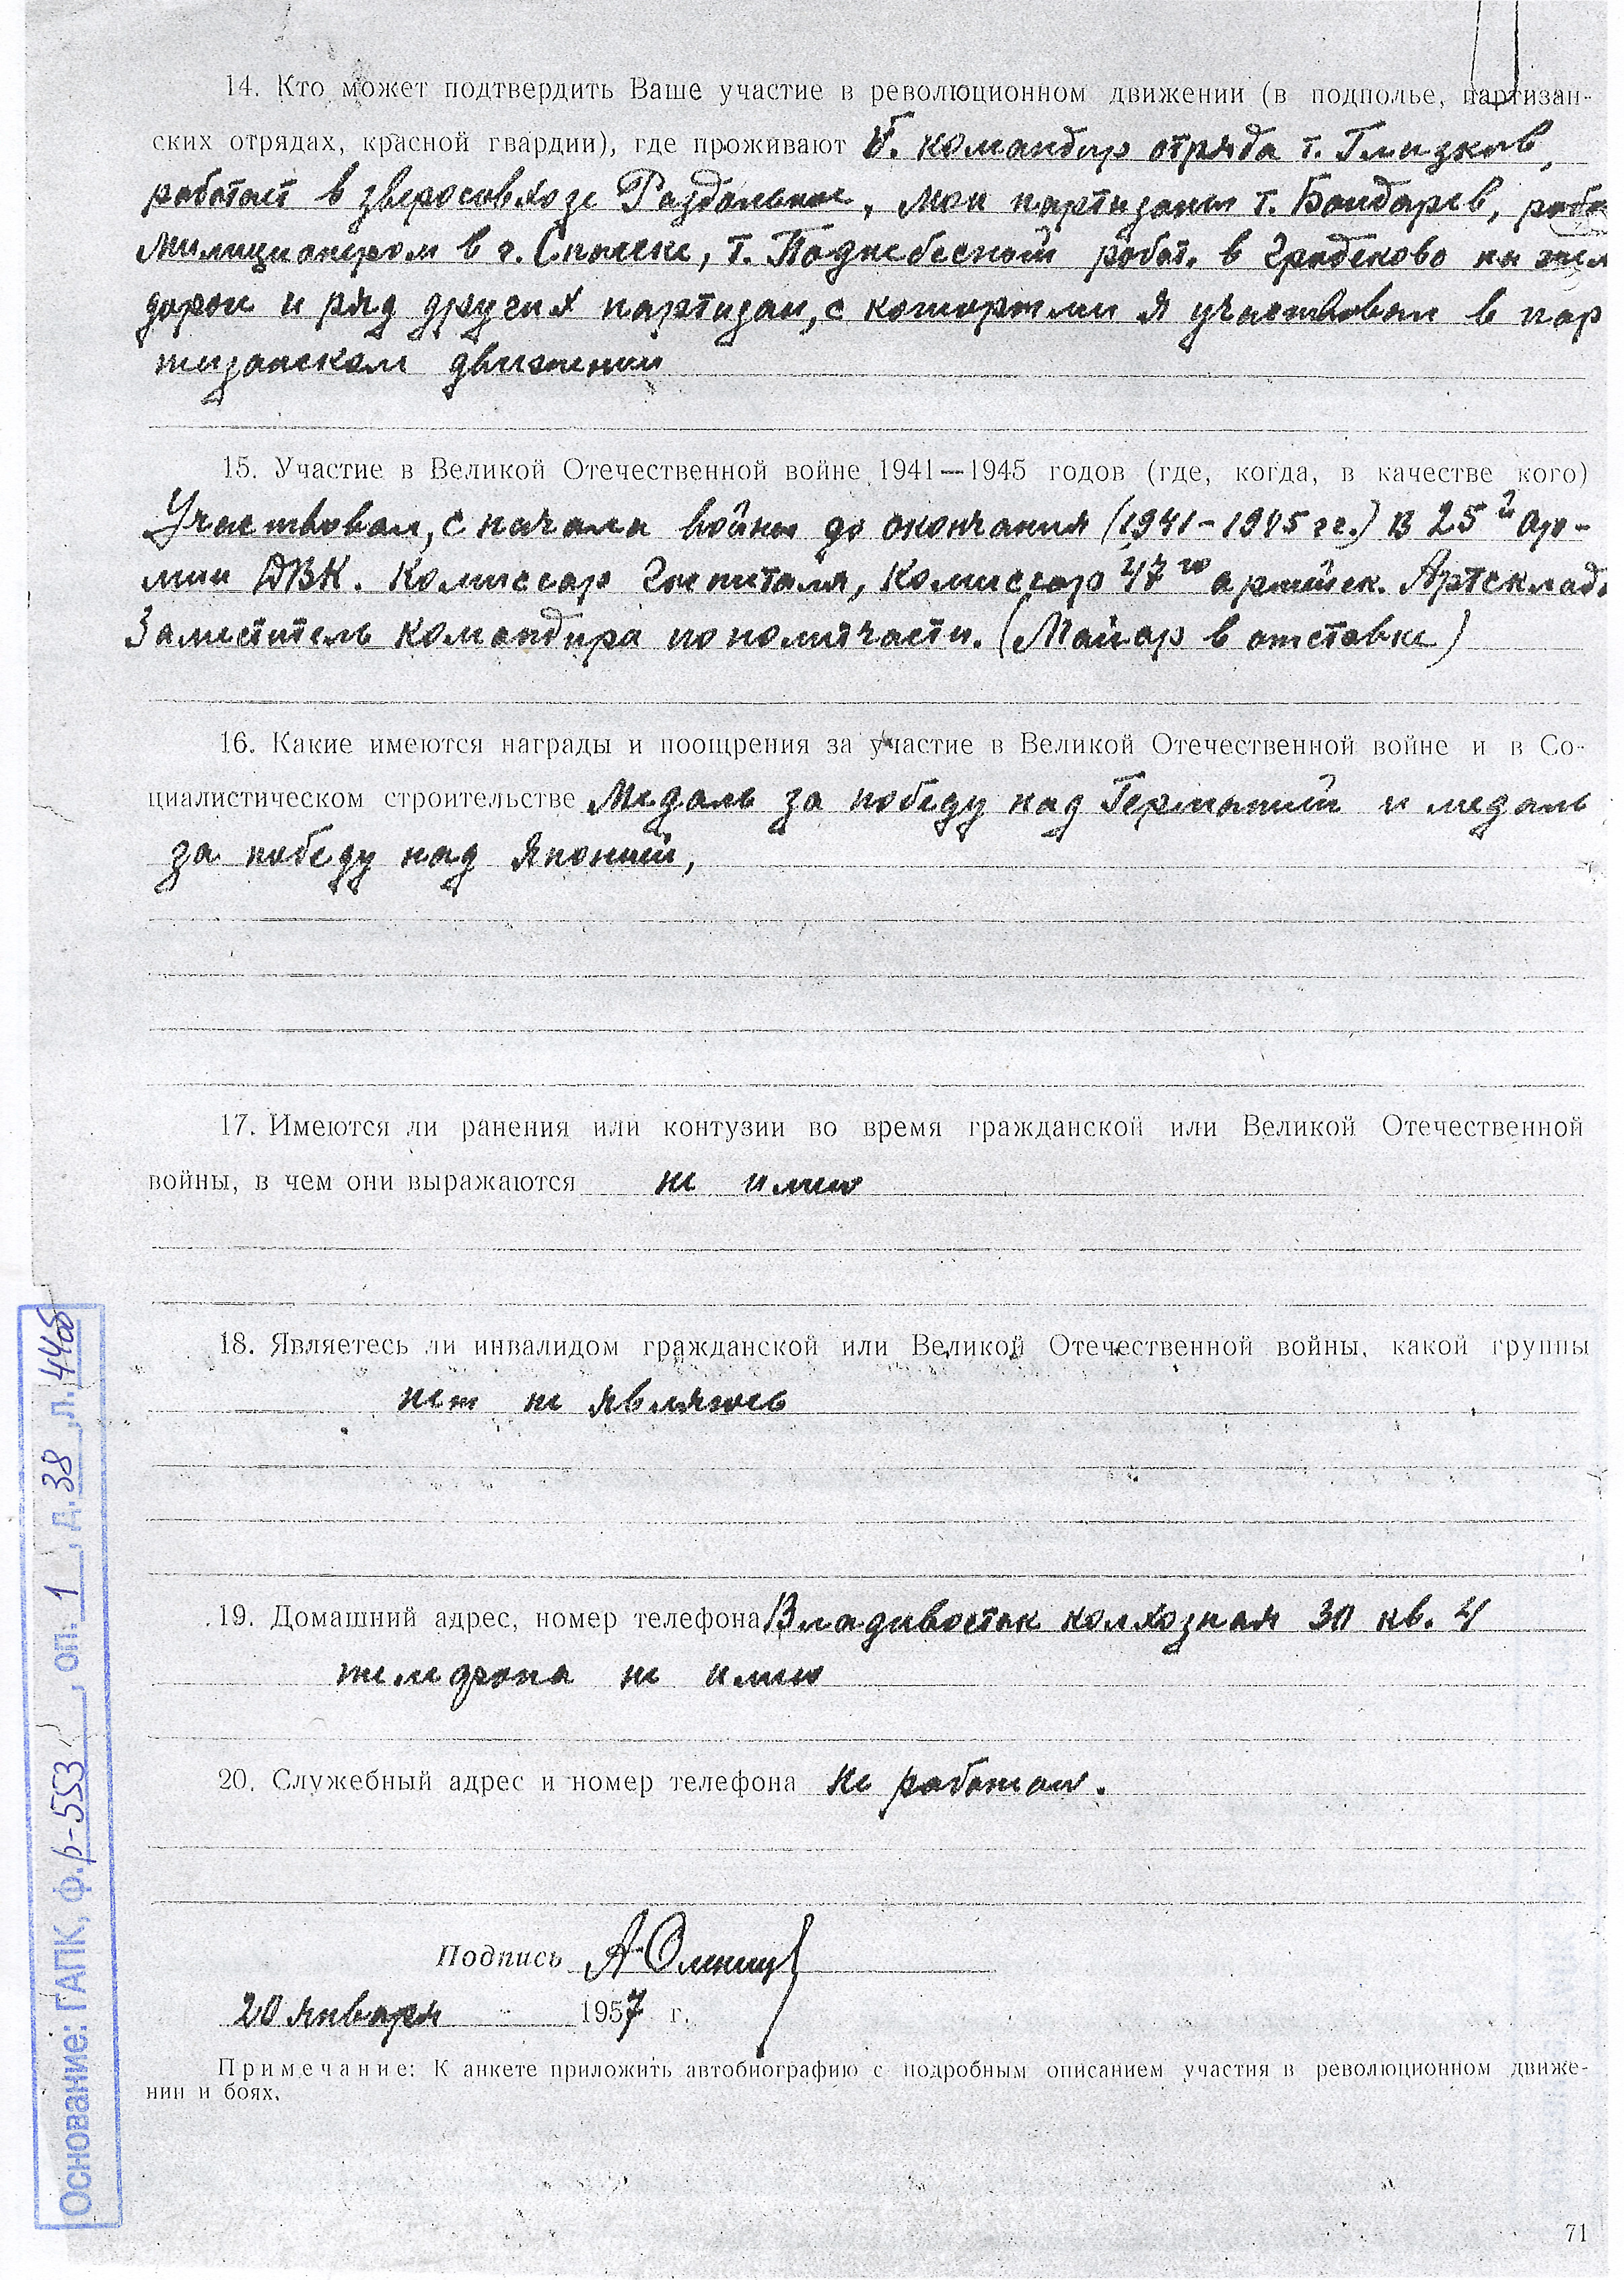 14. Кто может подтвердить Ваше участие в революционном движении (в подполье, партизан-
ских отрядах, красной гвардии), где проживают б. командир отряда т. Глизков,
работает в зверосовхозе Раздольное, мои партизаны т. Бондарев, рабо
милиционером в г. Спасске, т. Поднебесный работ. в Гродеково на жел
дороге и ряд других партизан, с которыми я участвовал в пар
тизанском движении
15. Участие в Великой Отечественной войне 1941—1945 годов (где, когда, в качестве кого)
Участвовал, с начала войны до окончания (1941-1945 гг.) в 25й Ар-
мии ДВК. Комиссар госпиталя, Комиссар 47го армейск. Артсклада
Заместитель командира по политчасти. (Майор в отставке)
16. Какие имеются награды и поощрения за участие в Великой Отечественной войне и в Со-
циалистическом строительстве Медаль за победу над Германией и медаль
за победу над Японией,
17. Имеются ли ранения или контузии во время гражданской или Великой Отечественной
войны, в чем они выражаются не имею
18. Являетесь ли инвалидом гражданской или Великой Отечественной войны, какой группы
нет не являюсь
19. Домашний адрес, номер телефона Владивосток колхозная 30 кв. 4
телефона не имею
20. Служебный адрес и номер телефона не работаю.
Подпись
20 января 1957 г.
Примечание: К анкете приложить автобиографию с подробным описанием участия в революционном движе-
нии и боях.
71
Основание: ГАПК, ф. р-553, оп. 1, д. 38, л. 44об